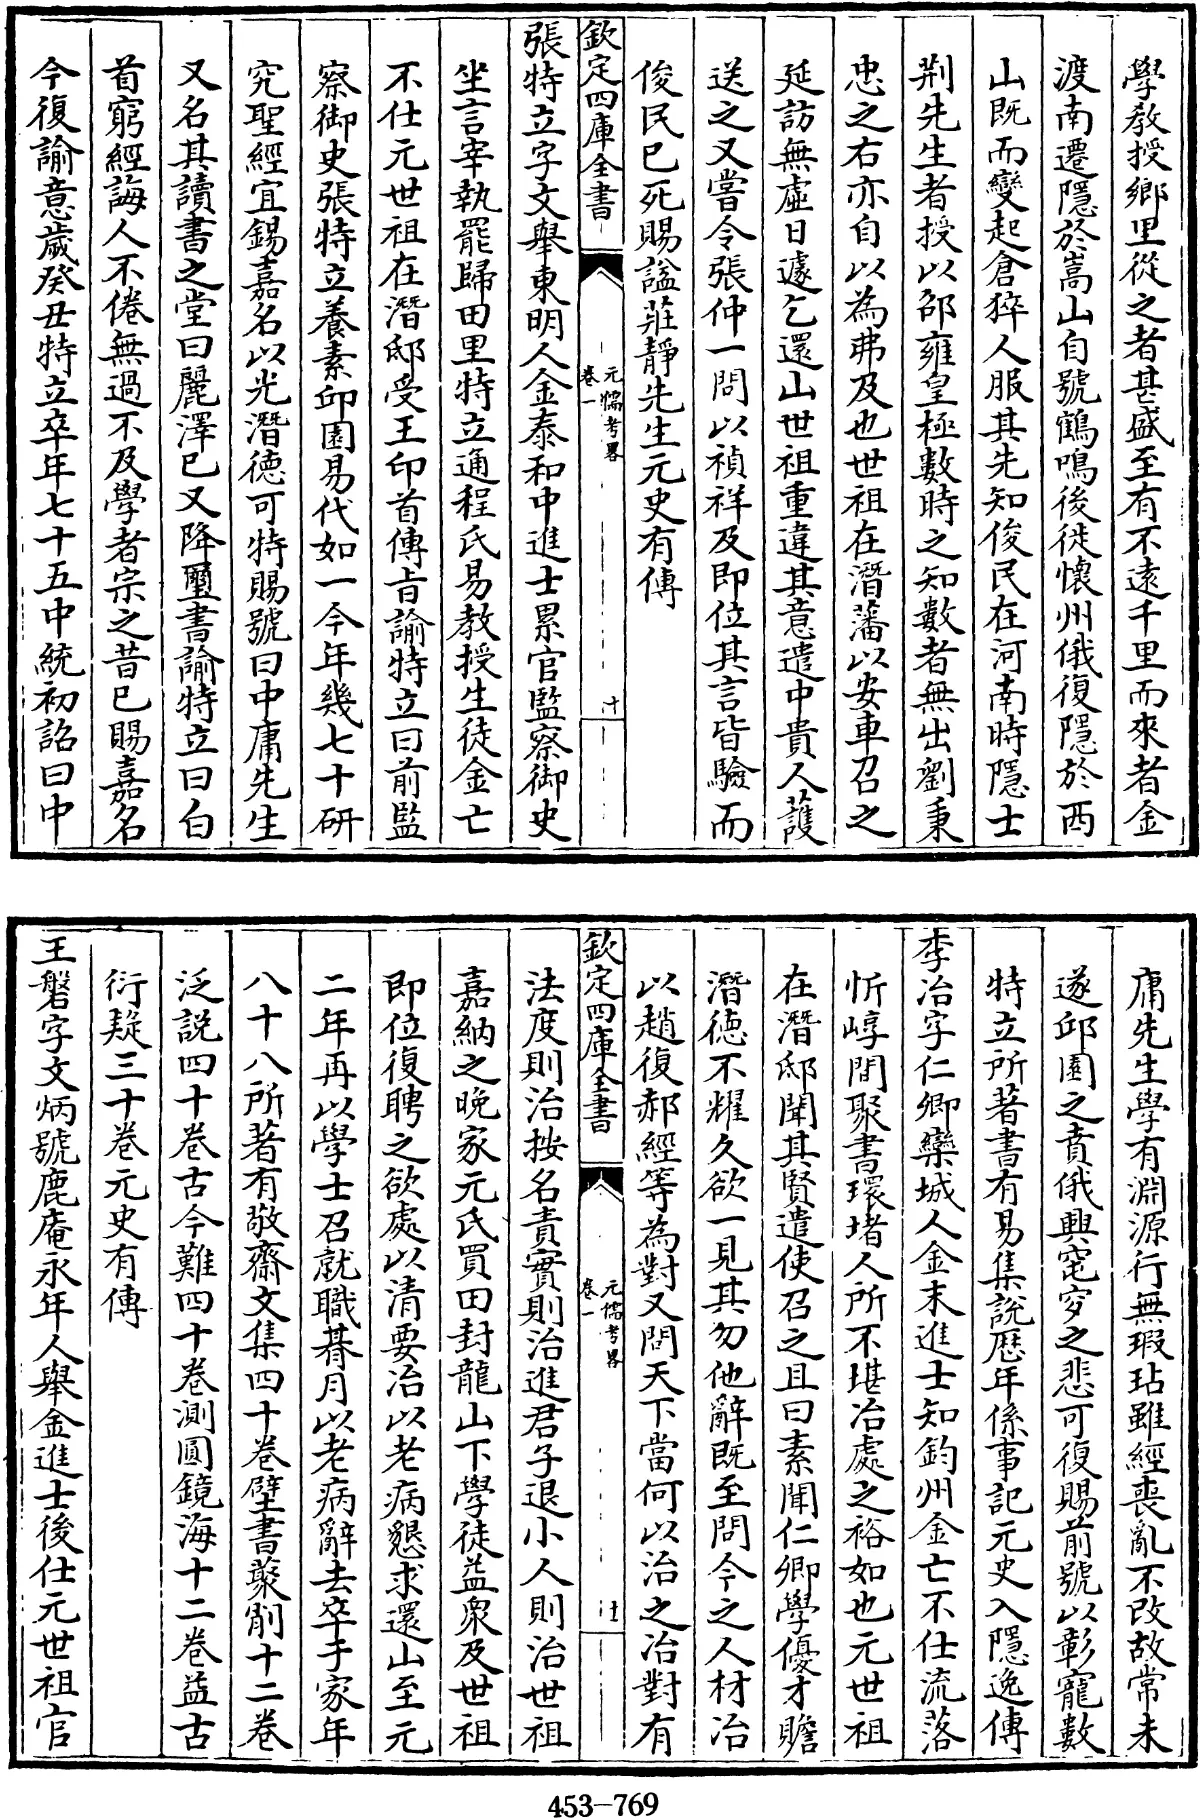 學教授鄉里從之者甚盛至有不遠千里而來者金
渡南遷隱於嵩山自號鶴鳴後徙懷州俄復隱於西
山既而變起倉猝人服其先知俊民在河南時隱士
荆先生者授以邵雍皇極數時之知數者無出劉秉
忠之右亦自以為弗及也世祖在潛藩以安車召之
延訪無虛日遽乞還山世祖重違其意遣中貴人護
送之又嘗令張仲一問以禎祥及即位其言皆驗而
俊民已死賜諡莊靜先生元史有傳
欽定四庫全書
元儒考畧
卷一
十
張特立字文舉東明人金泰和中進士累官監察御史
坐言宰執罷歸田里特立通程氏易教授生徒金亡
不仕元世祖在潛邸受王印首傳旨諭特立曰前監
察御史張特立養素邱園易代如一今年幾七十研
究聖經宜錫嘉名以光潛德可特賜號曰中庸先生
又名其讀書之堂曰麗澤已又降璽書諭特立曰白
首窮經誨人不倦無過不及學者宗之昔已賜嘉名
今復諭意歲癸丑特立卒年七十五中統初詔曰中
庸先生學有淵源行無瑕玷雖經喪亂不改故常未
遂邱園之賁俄興窀穸之悲可復賜前號以彰寵數
特立所著書有易集說歴年係事記元史入隱逸傳
李冶字仁卿欒城人金末進士知鈞州金亡不仕流落
忻崞間聚書環堵人所不堪冶處之裕如也元世祖
在潛邸聞其賢遣使召之且曰素聞仁卿學優才贍
潛德不耀久欲一見其勿他辭既至問今之人材冶
以趙復郝經等為對又問天下當何以治之冶對有
欽定四庫全書
元儒考畧
卷一
十一
法度則治按名責實則治進君子退小人則治世祖
嘉納之晚家元氏買田封龍山下學徒益衆及世祖
即位復聘之欲處以清要冶以老病懇求還山至元
二年再以學士召就職朞月以老病辭去卒于家年
八十八所著有敬齋文集四十卷壁書藂削十二卷
泛說四十卷古今難四十卷測圓鏡海十二卷益古
衍疑三十卷元史有傳
王磐字文炳號鹿庵永年人舉金進士後仕元世祖官
453-769